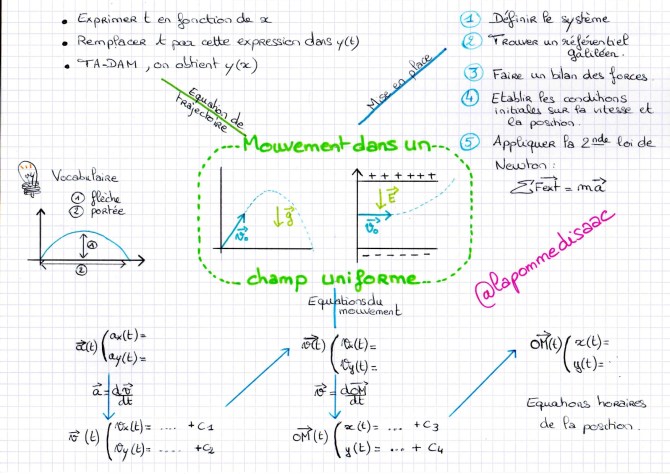 • Exprimer t en fonction de x
• Remplacer t par cette expression dans y(t)
• TA-DAM, on obtient y(x)
Equation de
trajectoire
Mise en place
① Définir le système
② Trouver un référentiel
galiléen.
③ Faire un bilan des forces.
④ Etablir les conditions
initiales sur la vitesse et
la position.
⑤ Appliquer la 2nde loi de
Newton :
∑F⃗ext = ma⃗
Mouvement dans un
v⃗₀
↓g⃗
+ + + + + +
↓E⃗
v⃗₀
- - - - - - -
champ uniforme
Vocabulaire
① flèche
② portée
①
②
@lapommedisaac
Equations du
mouvement
a⃗(t) ( ax(t) =
ay(t) =
a⃗ = dv⃗/dt
v⃗(t) ( vx(t) = .... + C1
vy(t) = ...... + C2
v⃗(t) ( vx(t) =
vy(t) =
v⃗ = dOM⃗/dt
OM⃗(t) ( x(t) = ... + C3
y(t) = ... + C4
OM⃗(t) ( x(t) = ...
y(t) = ...
Equations horaires
de la position.